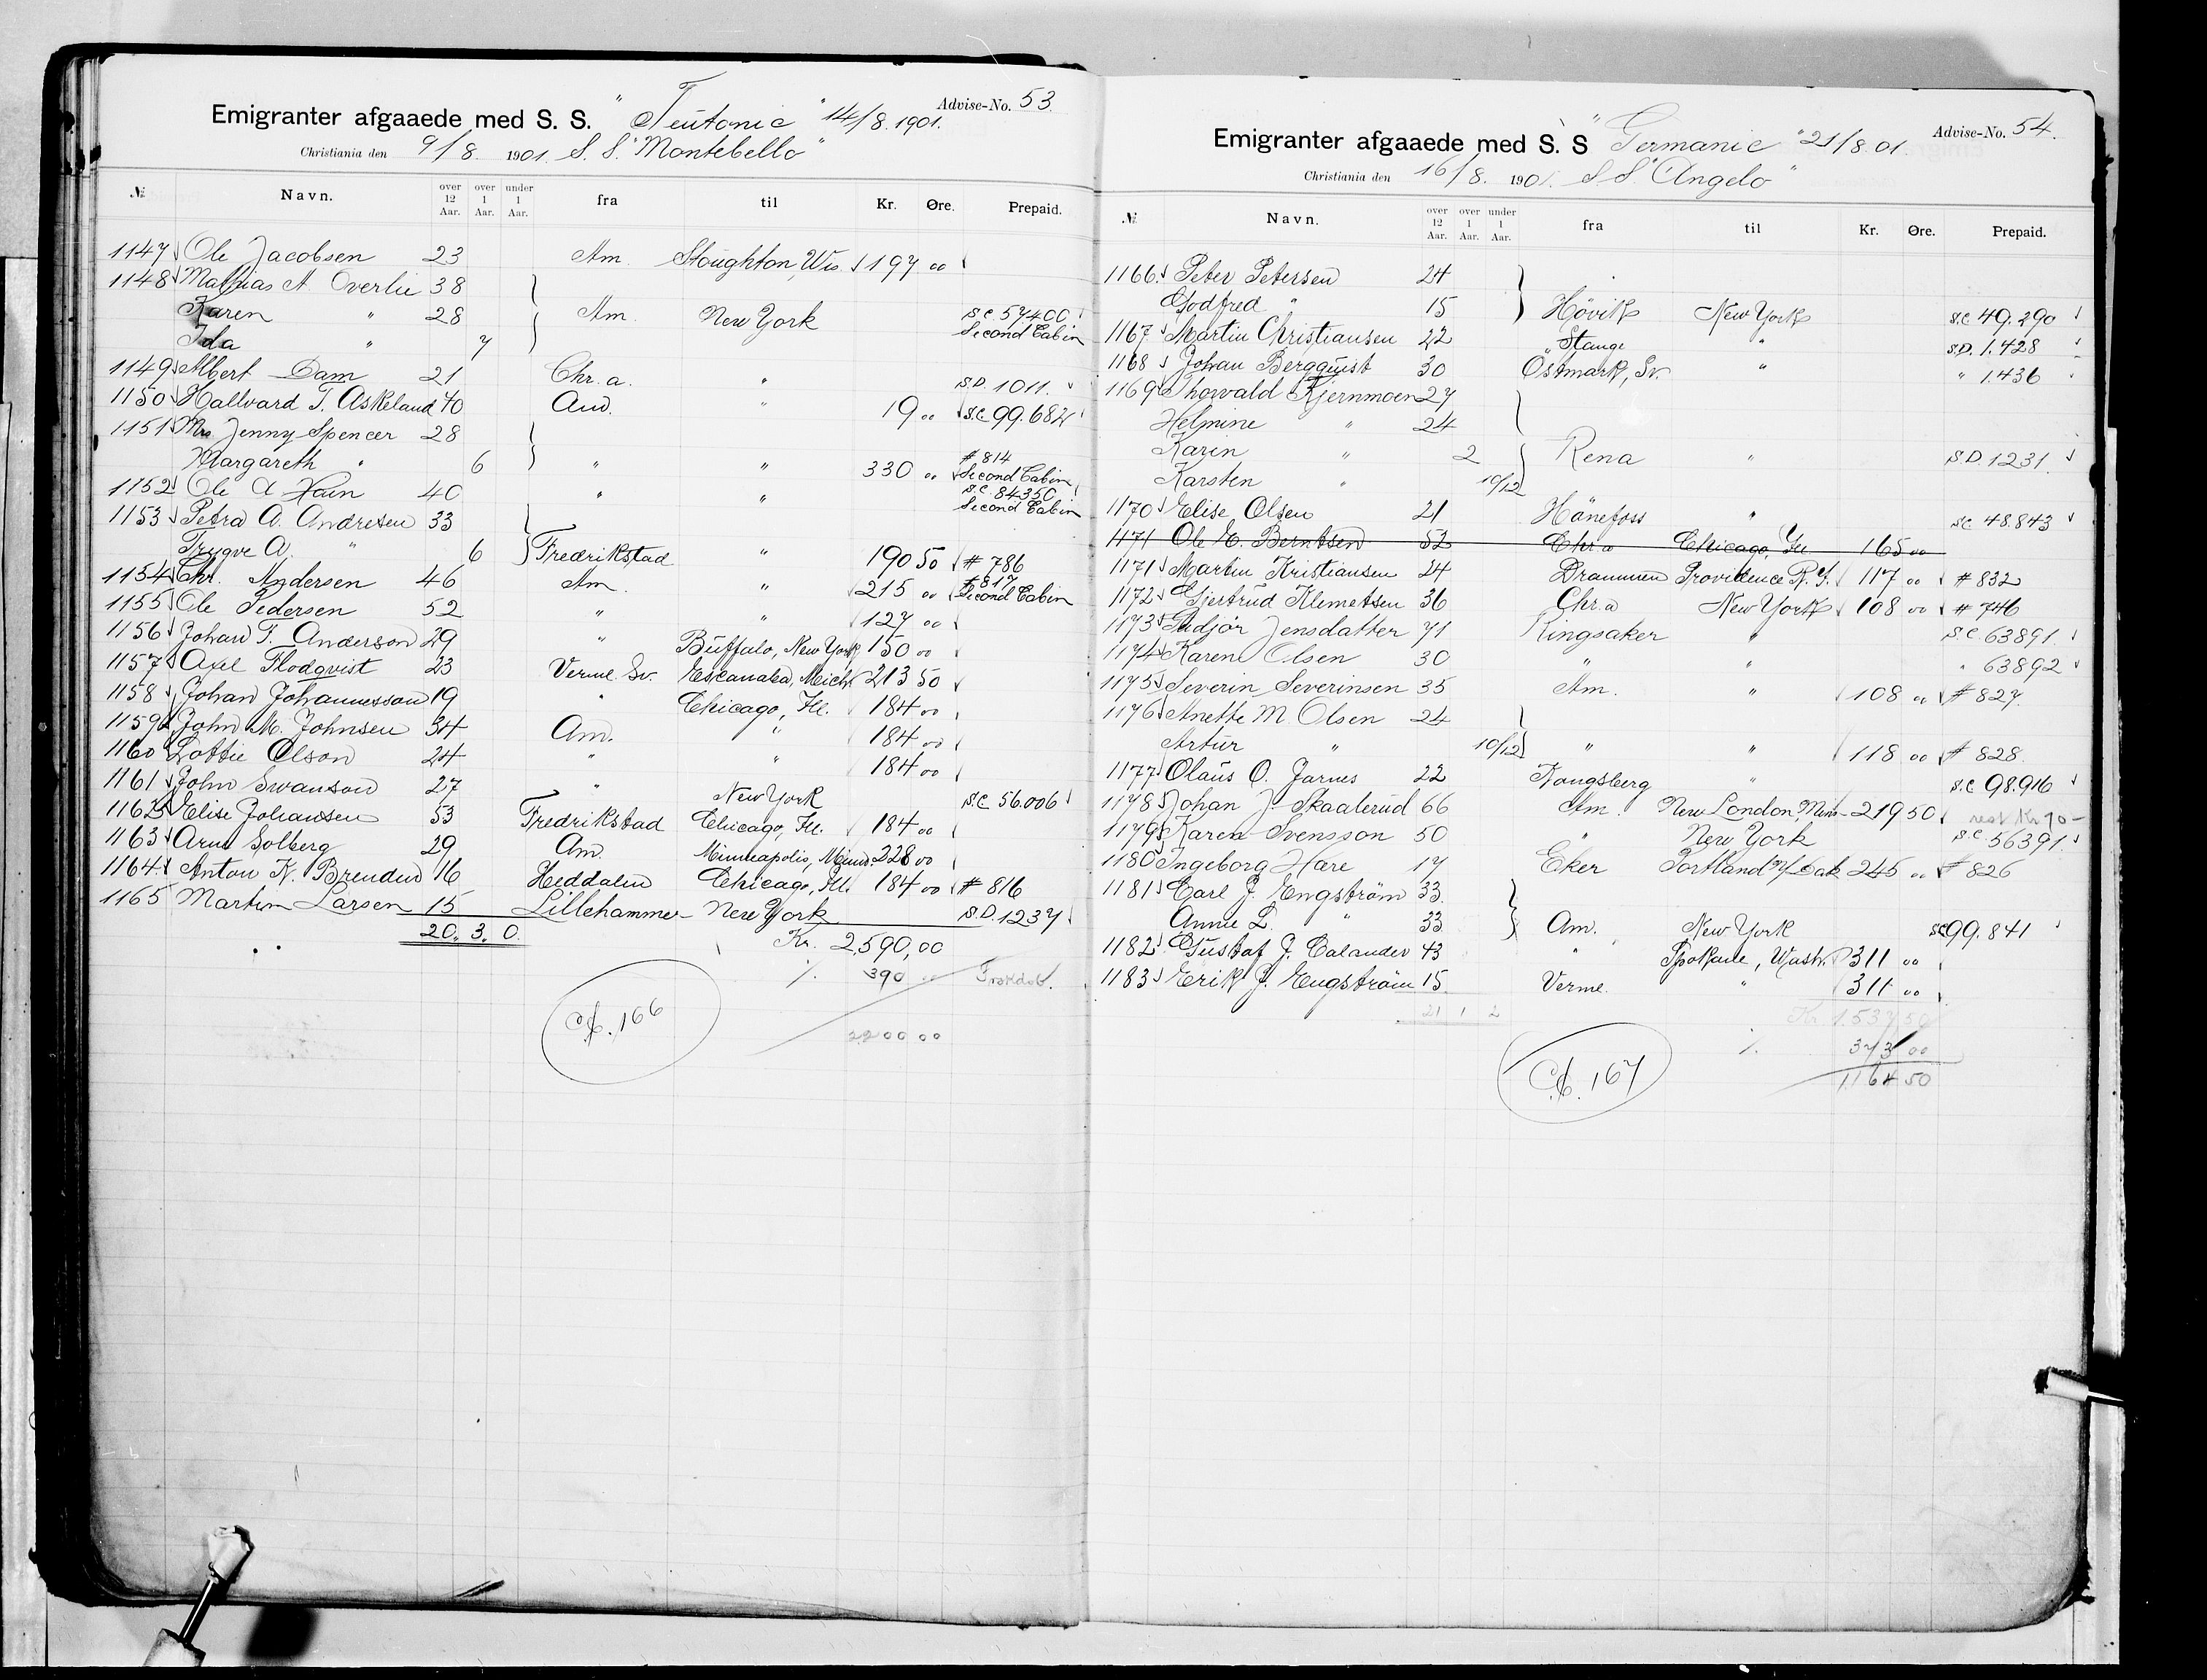 Emigranter afgaaede med S. S. "Teutonic" 14/8. 1901. Advise-No. 53
Christiania den 9/8. 1901. S. S. "Montebello"
№ Navn. over 12 Aar. over 1 Aar. under 1 Aar. fra til Kr. Øre. Prepaid.
1147 Ole Jacobsen 23 Am. Stoughton, Wis. 197 00
1148 Mathias A. Overlie 38
Karen " 28 Am. New York s.c. 57400
Ida " 7 Second Cabin
1149 Albert Dam 21 Chr.a. " s.D. 1011.
1150 Hallvard T. Askeland 40 Am. " 19 00 s.c. 99.684
1151 Mrs Jenny Spencer 28
Margareth " 6 " " 330 00 # 814 Second Cabin
1152 Ole A Hain 40 " " s.c. 84350 Second Cabin
1153 Petra A. Andresen 33
Trygve A. " 6 Fredrikstad " 190 50 # 786
1154 Chr. Andersen 46 Am. " 215 00 # 817 Second Cabin
1155 Ole Pedersen 52 " " 127 00
1156 Johan T. Anderson 29 " Buffalo, New York 150 00
1157 Axel Flodqvist 23 Verml. Sv. Escanaba, Mich. 213 50
1158 Johan Johannesson 19 " Chicago, Ill. 184 00
1159 John M. Johnsen 34 Am. " 184 00
1160 Lottie Olson 24 " " 184 00
1161 John Swanson 27 " New York s.c. 56.006
1162 Elise Johansen 53 Fredrikstad Chicago, Ill. 184 00
1163 Arne Solberg 29 Am. Minneapolis, Minn. 228 00
1164 Anton K. Brenden 16 Heddalen Chicago, Ill. 184 00 # 816
1165 Martin Larsen 15 Lillehammer New York s.D. 1237
20. 3. 0. Kr. 2,590,00
⁒ 390 00
2200 00
Cf. 166
Emigranter afgaaede med S. S "Germanic" 21/8.01. Advise-No. 54.
Christiania den 16/8. 1901. S S "Angelo"
№ Navn. over 12 Aar. over 1 Aar. under 1 Aar. fra til Kr. Øre. Prepaid.
1166 Peter Petersen 24
Godfred " 15 Hövik New York s.c. 49.290
1167 Martin Christiansen 22 Stange " s.D. 1.428
1168 Johan Bergquist 30 Östmark, Sv. " " 1.436
1169 Thorvald Kjernmoen 27
Helmine " 24
Karin " 2 Rena " s.D. 1231.
Karsten " 10/12
1170 Elise Olsen 21 Hönefoss " s.c. 48.843
1171 Ole E. Berntsen 52 Chr.a Chicago, Ill 165 00
1171 Martin Kristiansen 24 Drammen Providence R.I. 117 00 # 832
1172 Gjertrud Klemetsen 36 Chr.a New York 108 00 # 746
1173 Gudjör Jensdatter 71 Ringsaker " s.c. 63891
1174 Karen Olsen 30 " " " 63892
1175 Severin Severinsen 35 Am. " 108 00 # 827.
1176 Anette M. Olsen 24
Artur " 10/12 " " 118 00 # 828.
1177 Olaus O. Jarnes 22 Kongsberg " s.c. 98.916
1178 Johan J. Skaaterud 66 Am. New London, Minn 219 50 rest Kr 70-
1179 Karen Svensson 50 " New York s.c. 56391
1180 Ingeborg Hare 17 Eker Portland N/Dak 245 00 # 826
1181 Carl J. Engström 33.
Annie L. " 33 Am. New York s.c 99.841
1182 Gustaf J. Calander 43 " Spokane, Wash. 311 00
1183 Erik J. Engström 15 Verml. " 311 00
21 1 2 Kr 1.537,50
⁒ 373 00
1,164 50
Cf. 167